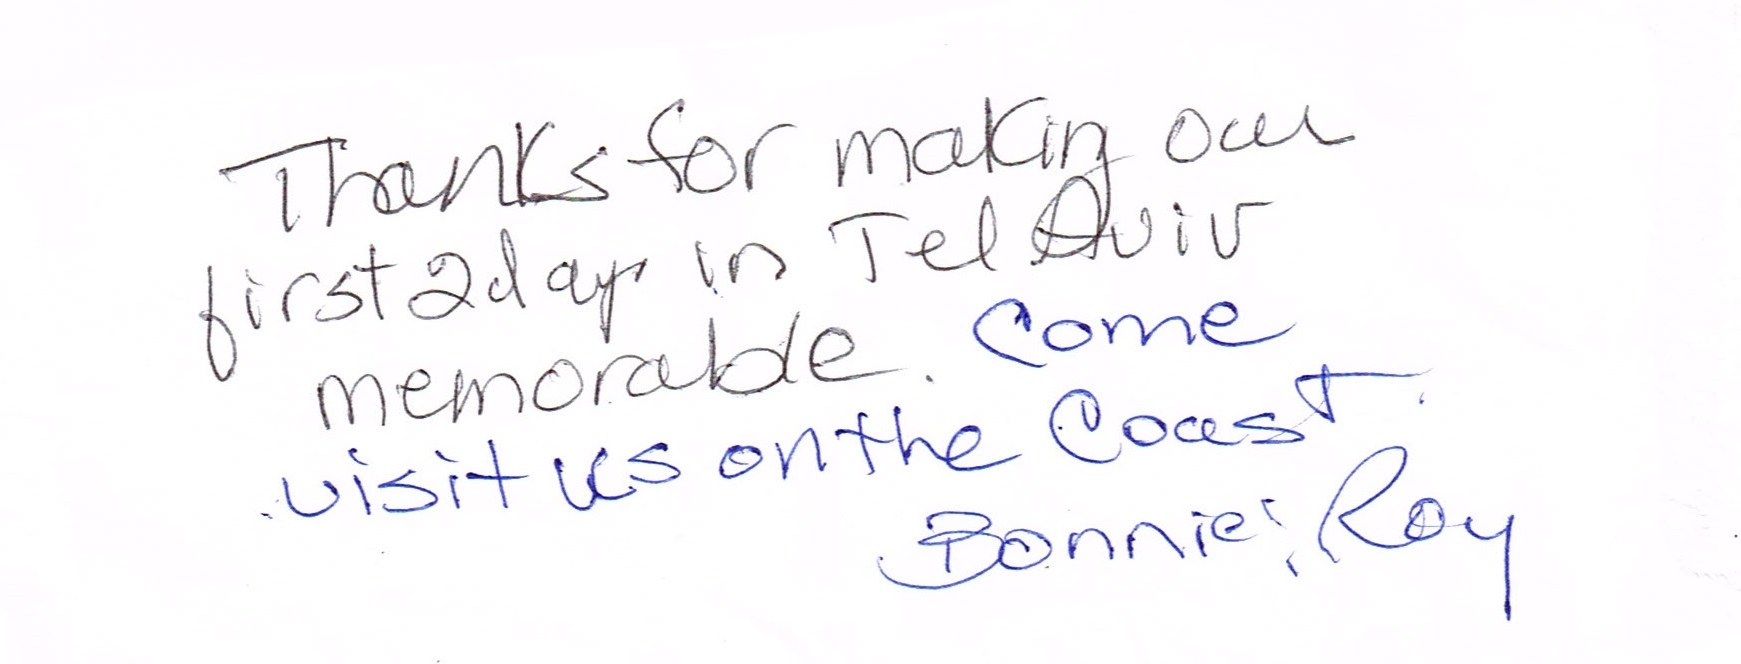 Thanks for making our
first 2 days in Tel Aviv
memorable. Come
visit us on the Coast.
Bonnie; Roy